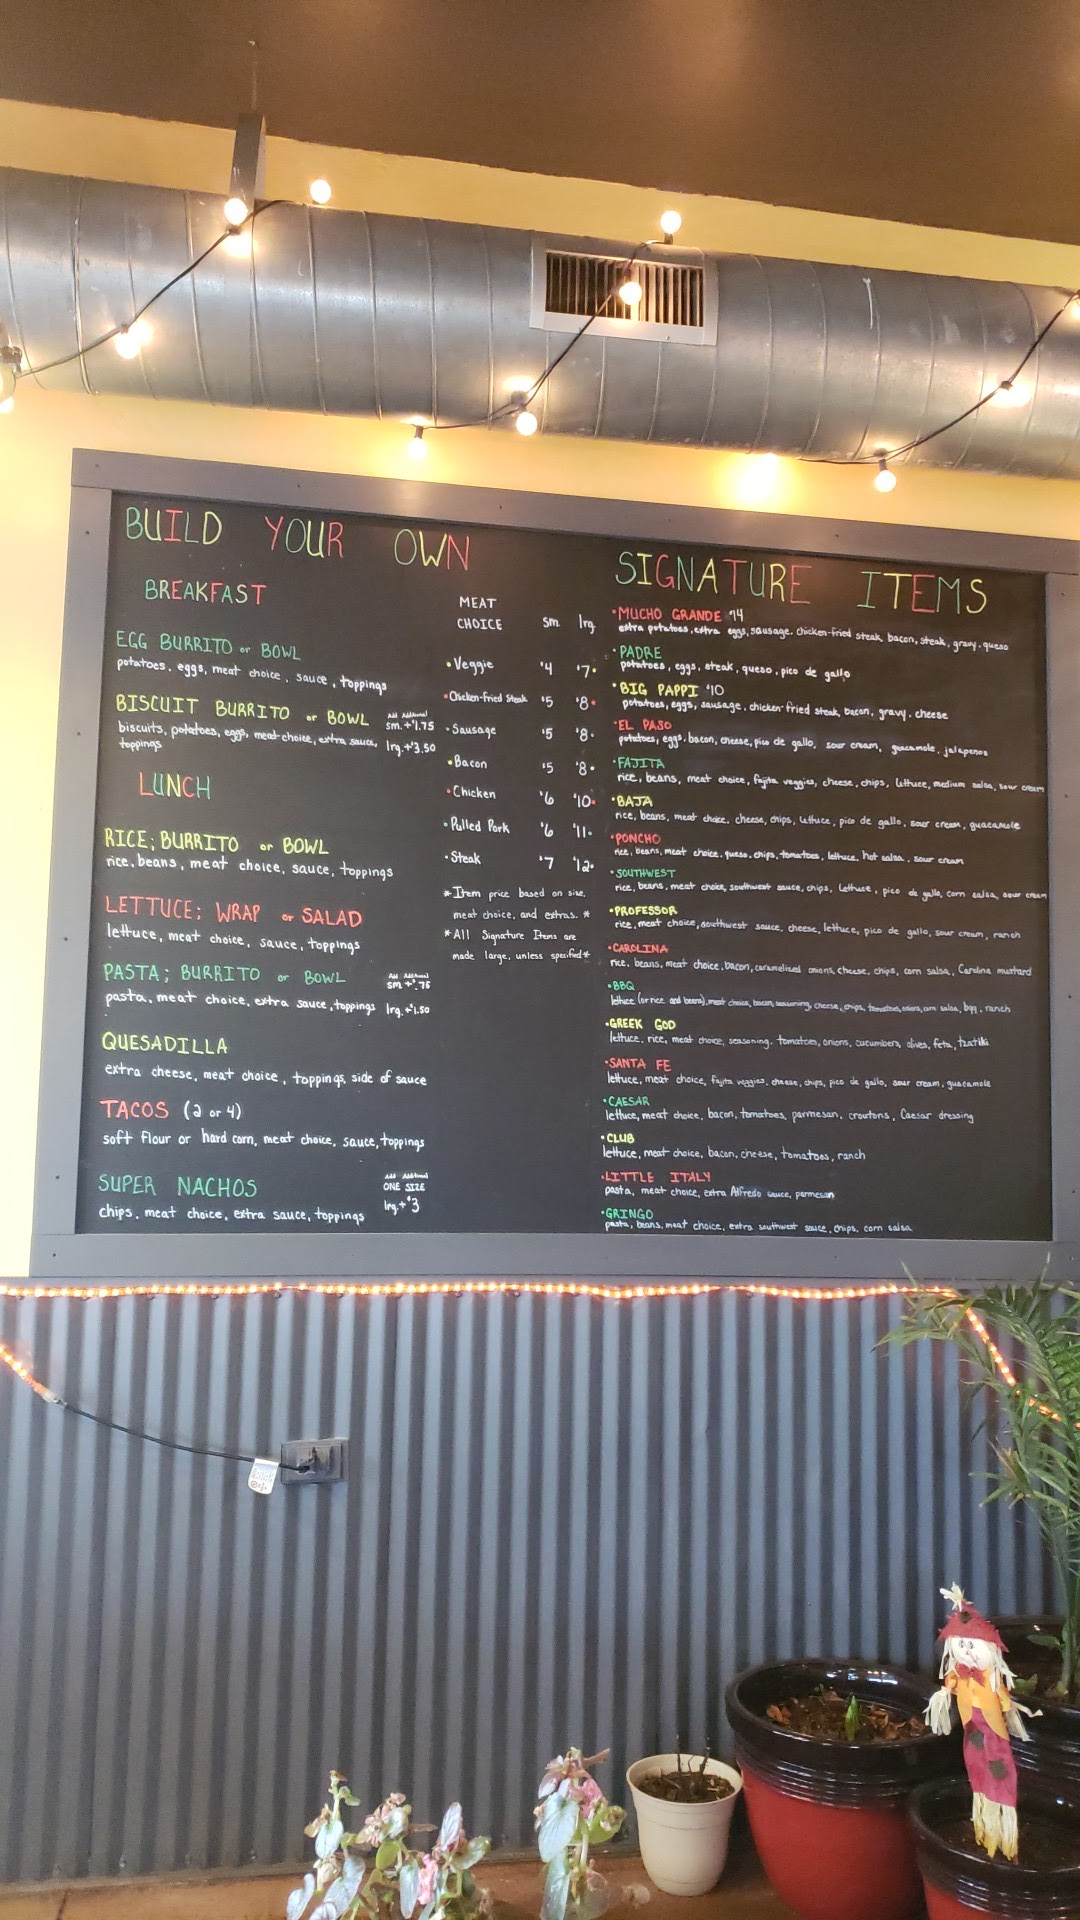 BUILD YOUR OWN
BREAKFAST
EGG BURRITO or BOWL
potatoes, eggs, meat choice, sauce, toppings
BISCUIT BURRITO or BOWL
Add Additional
sm. +$1.75
lrg. +$3.50
biscuits, potatoes, eggs, meat choice, extra sauce,
toppings
LUNCH
RICE; BURRITO or BOWL
rice, beans, meat choice, sauce, toppings
LETTUCE: WRAP or SALAD
lettuce, meat choice, sauce, toppings
PASTA; BURRITO or BOWL
Add Additional
sm. +$.75
lrg. +$1.50
pasta, meat choice, extra sauce, toppings
QUESADILLA
extra cheese, meat choice, toppings, side of sauce
TACOS (2 or 4)
soft flour or hard corn, meat choice, sauce, toppings
SUPER NACHOS
Add Additional
ONE SIZE
lrg. +$3
chips, meat choice, extra sauce, toppings
MEAT
CHOICE sm. lrg.
•Veggie $4 $7•
•Chicken-Fried Steak $5 $8•
•Sausage $5 $8•
•Bacon $5 $8•
•Chicken $6 $10•
•Pulled Pork $6 $11•
•Steak $7 $12•
*Item price based on size,
meat choice, and extras.*
*All Signature Items are
made large, unless specified*
SIGNATURE ITEMS
•MUCHO GRANDE $14
extra potatoes, extra eggs, sausage, chicken-fried steak, bacon, steak, gravy, queso
•PADRE
potatoes, eggs, steak, queso, pico de gallo
•BIG PAPPI $10
potatoes, eggs, sausage, chicken-fried steak, bacon, gravy, cheese
•EL PASO
potatoes, eggs, bacon, cheese, pico de gallo, sour cream, guacamole, jalapenos
•FAJITA
rice, beans, meat choice, fajita veggies, cheese, chips, lettuce, medium salsa, sour cream
•BAJA
rice, beans, meat choice, cheese, chips, lettuce, pico de gallo, sour cream, guacamole
•PONCHO
rice, beans, meat choice, queso, chips, tomatoes, lettuce, hot salsa, sour cream
•SOUTHWEST
rice, beans, meat choice, southwest sauce, chips, lettuce, pico de gallo, corn salsa, sour cream
•PROFESSOR
rice, meat choice, southwest sauce, cheese, lettuce, pico de gallo, sour cream, ranch
•CAROLINA
rice, beans, meat choice, bacon, caramelized onions, cheese, chips, corn salsa, Carolina mustard
•BBQ
lettuce (or rice and beans), meat choice, bacon, seasoning, cheese, chips, tomatoes, onions, corn salsa, bqq, ranch
•GREEK GOD
lettuce, rice, meat choice, seasoning, tomatoes, onions, cucumbers, olives, feta, tzatiki
•SANTA FE
lettuce, meat choice, fajita veggies, cheese, chips, pico de gallo, sour cream, guacamole
•CAESAR
lettuce, meat choice, bacon, tomatoes, parmesan, croutons, Caesar dressing
•CLUB
lettuce, meat choice, bacon, cheese, tomatoes, ranch
•LITTLE ITALY
pasta, meat choice, extra Alfredo sauce, parmesan
•GRINGO
pasta, beans, meat choice, extra southwest sauce, chips, corn salsa